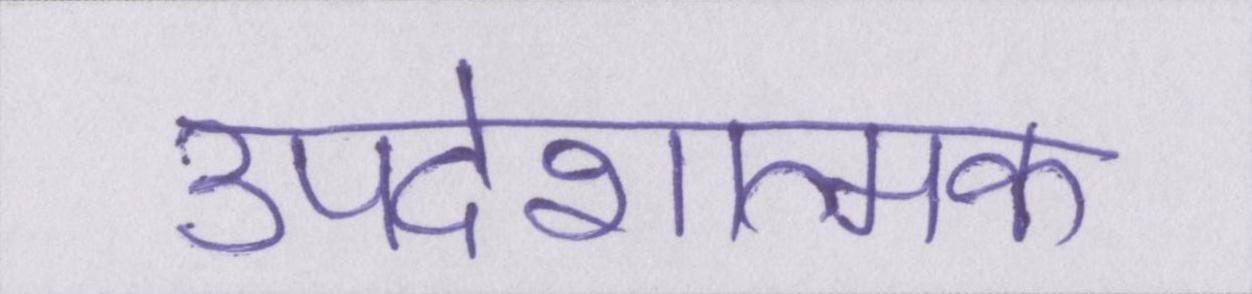 उपदेशात्मक